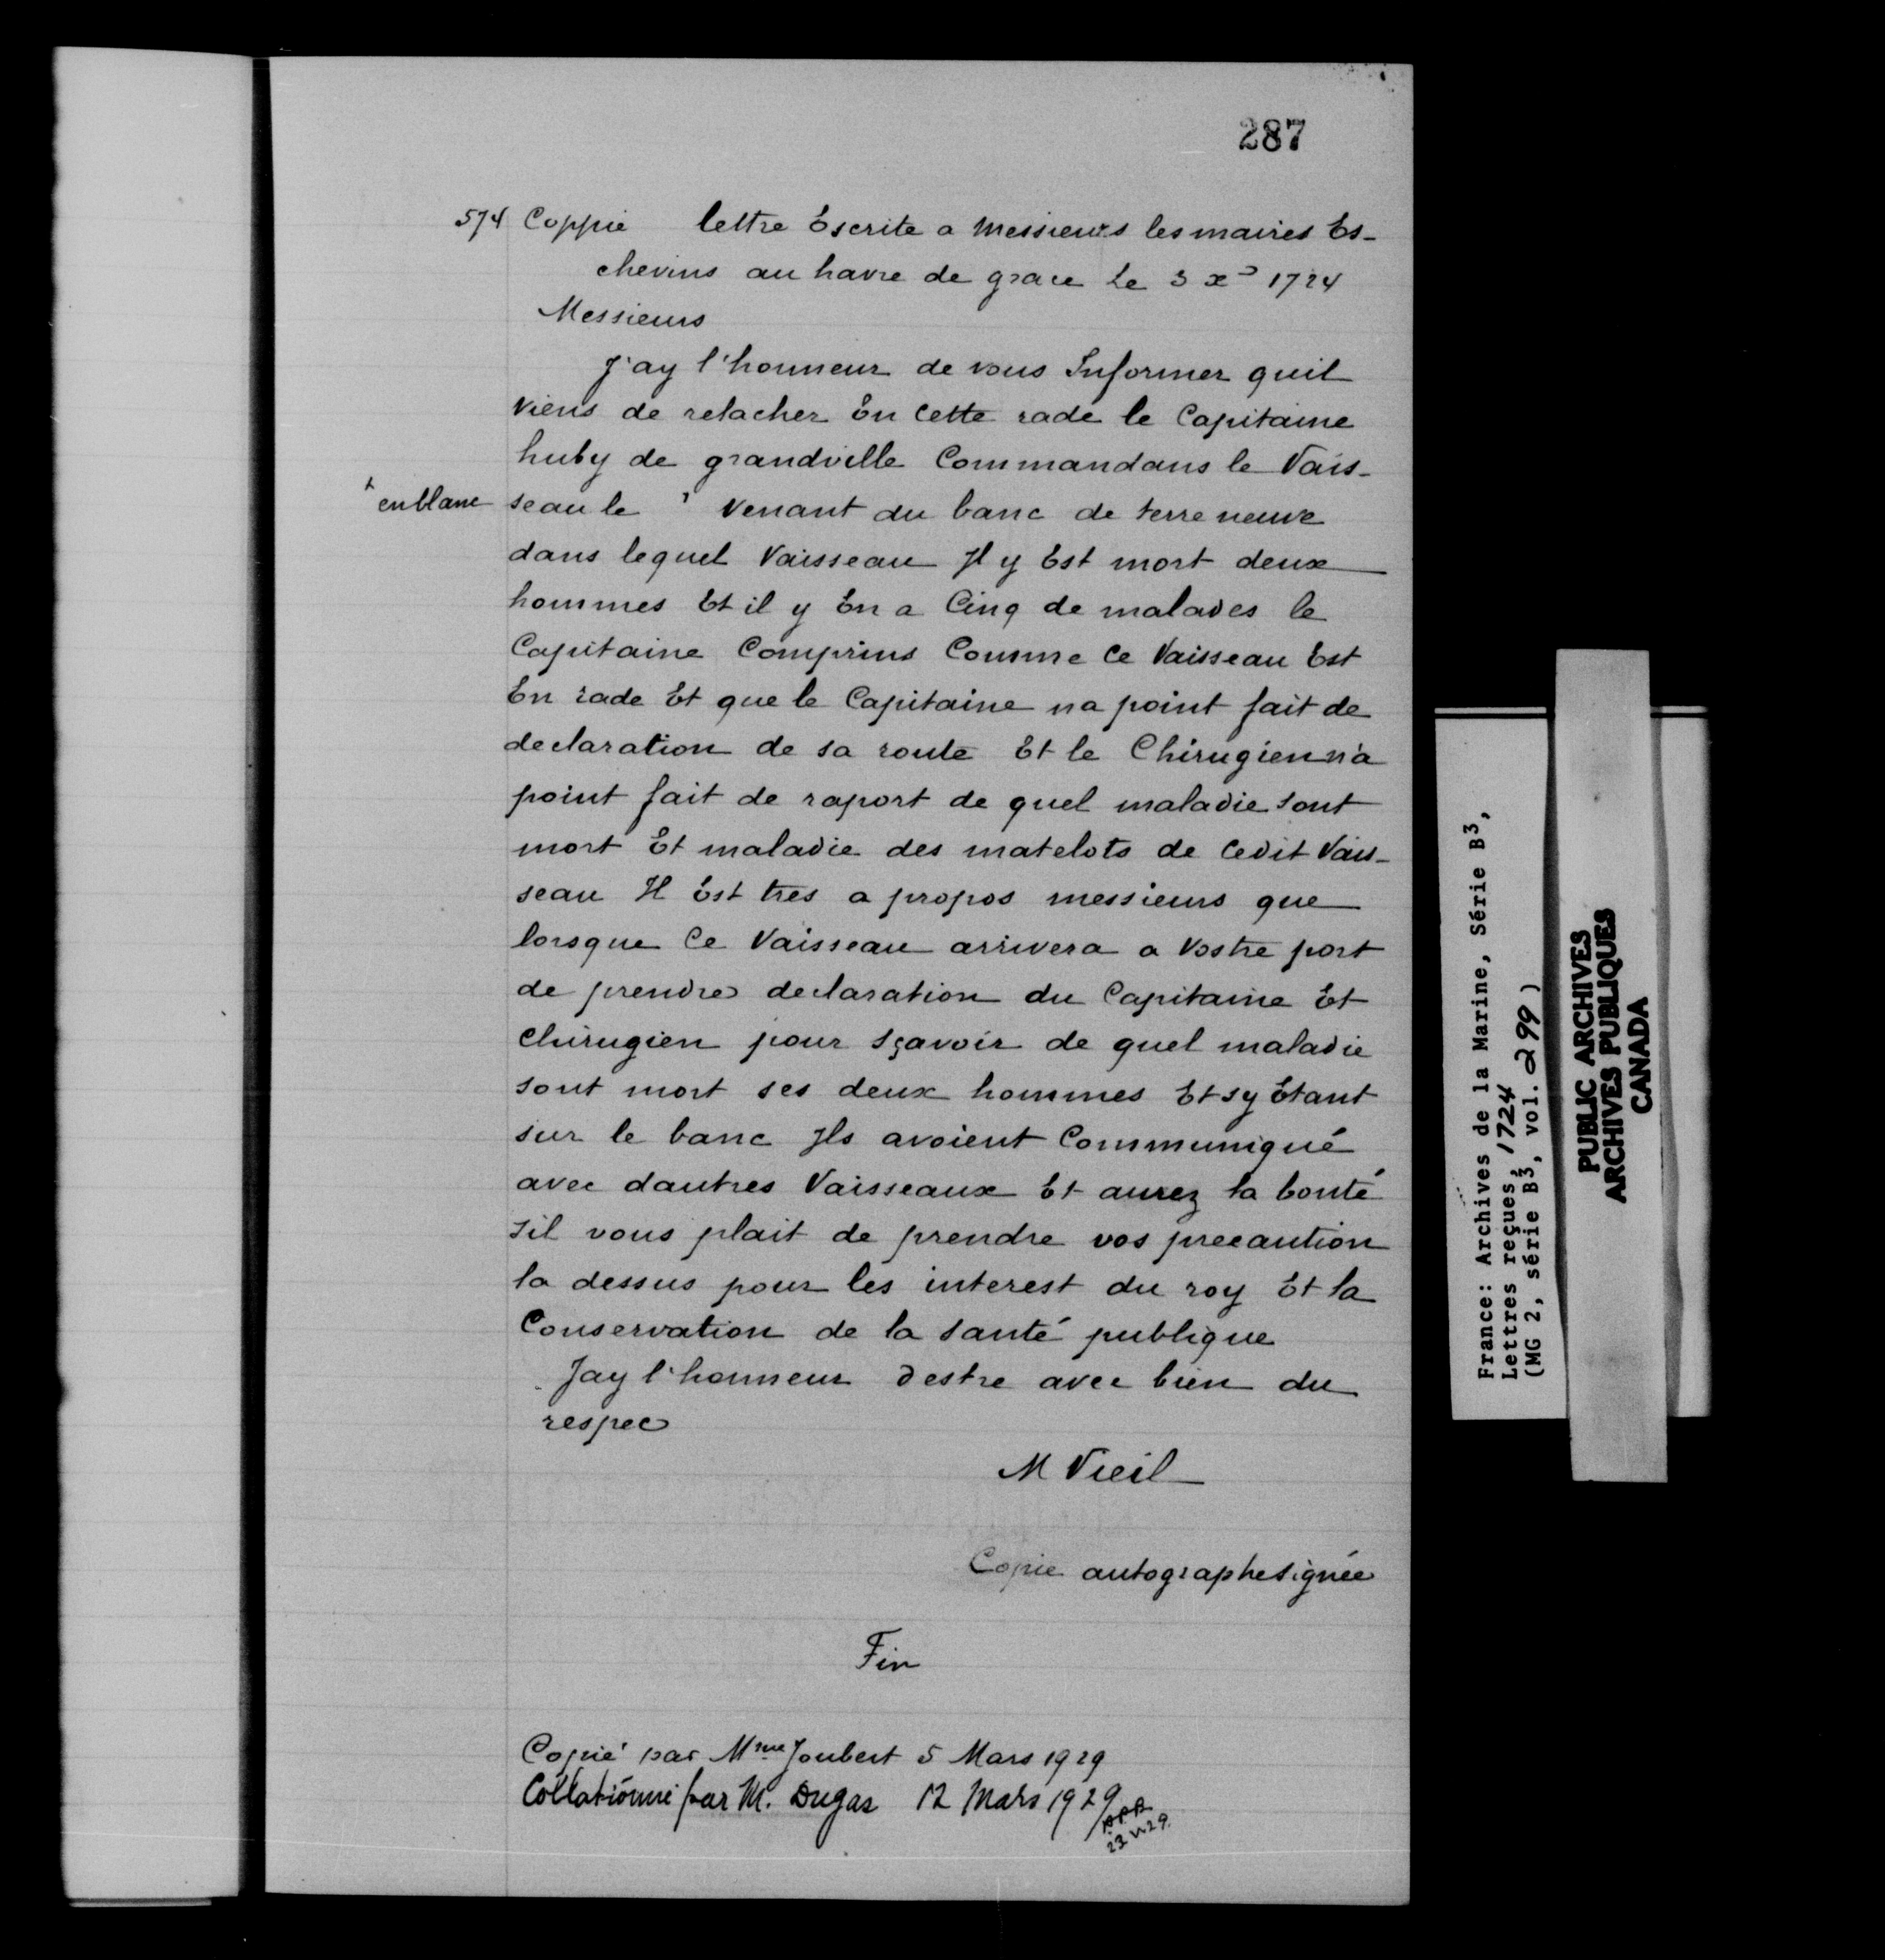 287
574 Coppie lettre Escrite a Messieurs les maires Es-
chevins au havre de grace Le 3 xᵉ 1724
Messieurs
J'ay l'honneur de vous Informer quil
viens de relacher En Cette rade le Capitaine
huby de grandville Commandans le Vais-
en blanc seau le venant du banc de terre neuve
dans lequel Vaisseau Il y Est mort deux
hommes Et il y En a Cinq de malades le
Capitaine Comprins Comme Ce Vaisseau Est
En rade Et que le Capitaine na point fait de
declaration de sa route Et le Chirugien n'a
point fait de raport de quel maladie sont
mort Et maladie des matelots de Cedit Vais-
seau Il Est tres a propos messieurs que
lorsque Ce Vaisseau arrivera a Vostre port
de prendre declaration du Capitaine Et
Chirugien pour sçavoir de quel maladie
sont mort ses deux hommes Et sy Etant
sur le banc Ils avoient Communiqué
avec dautres Vaisseaux Et aurez la bonté
sil vous plait de prendre vos precaution
la dessus pour les interest du roy Et la
Conservation de la santé publique
Jay l'honneur destre avec bien du
respec
M Vieil
Copie autographe signée
Fin
Copié par Mme Joubert 5 Mars 1929
Collationné par M. Dugas 12 Mars 1929
France: Archives de la Marine, Série B³,
Lettres reçues, 1724
(MG 2, série B³, vol. 299)
PUBLIC ARCHIVES
ARCHIVES PUBLIQUES
CANADA